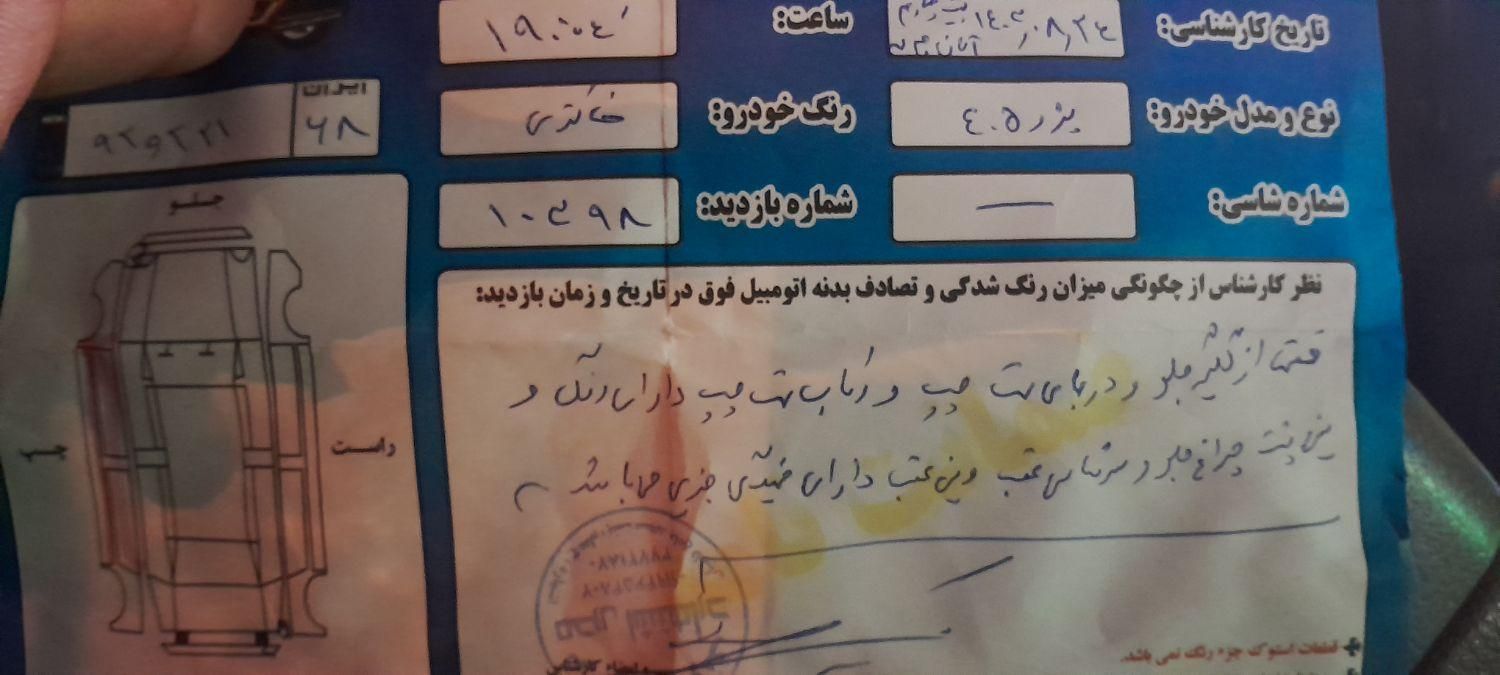 تاریخ کارشناسی: ۱۴۰۳,۰۸,۲۴
ساعت: ۱۹:۰۴
نوع و مدل خودرو: پژو ۴۰۵
رنگ خودرو: خاکستری
ایران
۶۸
شماره شاسی: —
شماره بازدید: ۱۰۳۹۸
جلو
راست
چپ
نظر کارشناس از چگونگی میزان رنگ شدگی و تصادف بدنه اتومبیل فوق در تاریخ و زمان بازدید:
از گلگیر جلو و دربهای سمت چپ و رکاب سمت چپ دارای رنگ و
سینی پشت چراغ جلو و عقب و سینی عقب دارای خوردگی جزئی میباشد
قطعات استوک جزء رنگ نمی باشد.